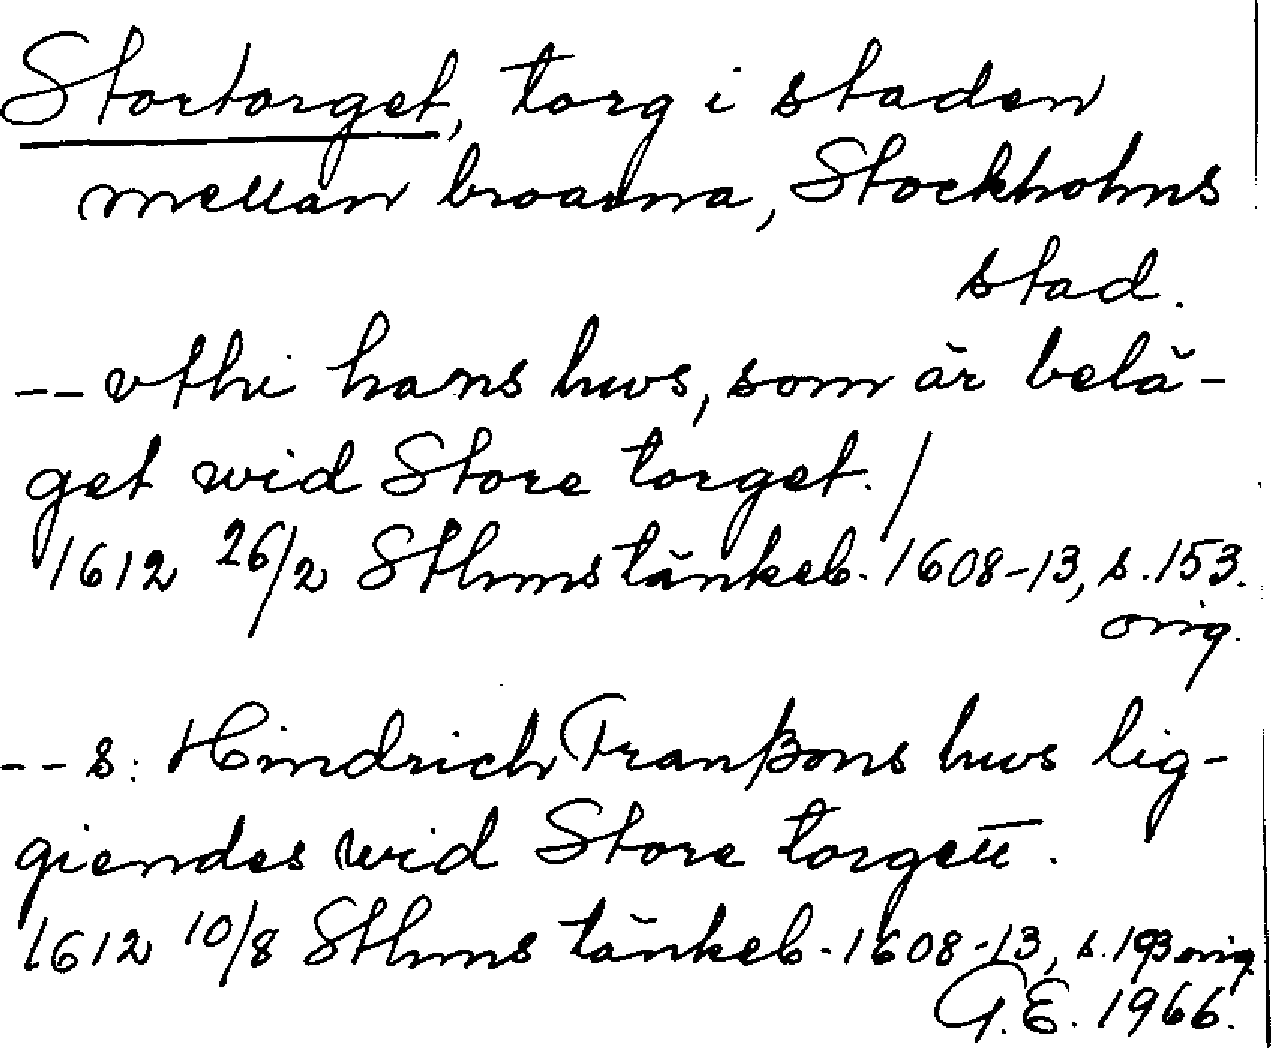 Stortorget, torg i staden
mellan broarna, Stockholms
stad.
-- vthi hans hws, som är belä-
get wid Store torget. /
1612 26/2 Sthms tänkeb. 1608-13, s. 153.
orig.
-- s: Hindrich Franßons hws lig-
giendes wid Store torgett.
1612 10/8 Sthms tänkeb. 1608-13, s. 193 orig.
G.E. 1966.